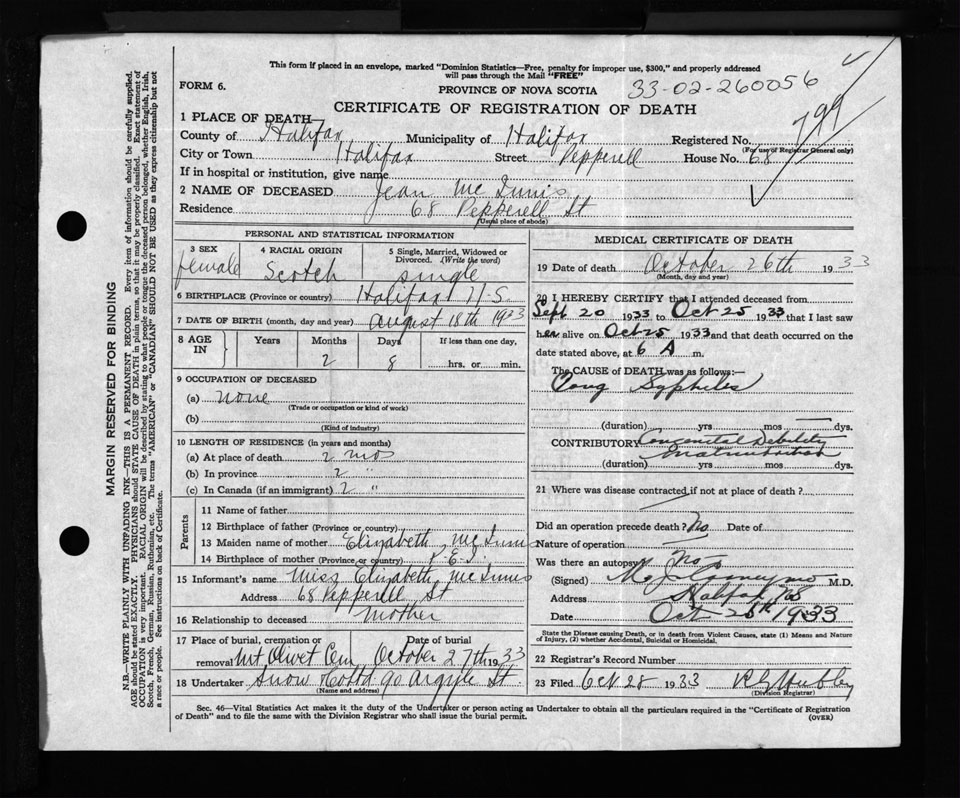 This form if placed in an envelope, marked "Dominion Statistics—Free, penalty for improper use, $300," and properly addressed
will pass through the Mail "FREE"
FORM 6.
PROVINCE OF NOVA SCOTIA
33-02-260056
799
CERTIFICATE OF REGISTRATION OF DEATH
1 PLACE OF DEATH—
County of Halifax Municipality of Halifax Registered No.
(For use of Registrar General only)
City or Town Halifax Street Pepperell House No. 68
If in hospital or institution, give name
2 NAME OF DECEASED Jean Mc Innis
Residence 68 Pepperell St
(Usual place of abode)
PERSONAL AND STATISTICAL INFORMATION
3 SEX
female
4 RACIAL ORIGIN
Scotch
5 Single, Married, Widowed or
Divorced. (Write the word)
single
6 BIRTHPLACE (Province or country) Halifax N.S.
7 DATE OF BIRTH (month, day and year) August 18th 1933
8 AGE IN
Years Months Days If less than one day,
2 8 hrs. or min.
9 OCCUPATION OF DECEASED
(a) none
(Trade or occupation or kind of work)
(b)
(Kind of industry)
10 LENGTH OF RESIDENCE (in years and months)
(a) At place of death 2 mos
(b) In province 2 "
(c) In Canada (if an immigrant) 2 "
Parents
11 Name of father
12 Birthplace of father (Province or country)
13 Maiden name of mother Elizabeth McInnis
14 Birthplace of mother (Province or country) P.E.I.
15 Informant's name Miss Elizabeth McInnis
Address 68 Pepperell St
16 Relationship to deceased Mother
17 Place of burial, cremation or Date of burial
removal Mt. Olivet Cem October 27th 1933
18 Undertaker Snow & Co Ltd 90 Argyle St.
(Name and address)
MEDICAL CERTIFICATE OF DEATH
19 Date of death October 26th 1933
(Month, day and year)
20 I HEREBY CERTIFY that I attended deceased from
Sept 20 1933 to Oct 25 1933 that I last saw
her alive on Oct 25 1933 and that death occurred on the
date stated above, at 6 A m.
The CAUSE of DEATH was as follows:—
Cong Syphiles
(duration) yrs mos dys.
CONTRIBUTORY Congenital Debility
Malnutrition
(duration) yrs mos dys.
21 Where was disease contracted if not at place of death?
Did an operation precede death? No Date of
Nature of operation
Was there an autopsy? No
(Signed) M.D.
Address Halifax, NS
Date Oct 26th 1933
State the Disease causing Death, or in death from Violent Causes, state (1) Means and Nature
of Injury, (2) whether Accidental, Suicidal or Homicidal.
22 Registrar's Record Number
23 Filed Oct 28 1933
(Division Registrar)
Sec. 46—Vital Statistics Act makes it the duty of the Undertaker or person acting as Undertaker to obtain all the particulars required in the "Certificate of Registration
of Death" and to file the same with the Division Registrar who shall issue the burial permit.
(OVER)
MARGIN RESERVED FOR BINDING
N.B.—WRITE PLAINLY WITH UNFADING INK—THIS IS A PERMANENT RECORD. Every item of information should be carefully supplied.
AGE should be stated EXACTLY. PHYSICIANS should STATE CAUSE OF DEATH in plain terms, so that it may be properly classified. Exact statement of
OCCUPATION is very important. RACIAL ORIGIN will be described by stating to what people or tongue the deceased person belonged, whether English, Irish,
Scotch, French, German, Russian, Ruthenian, etc. The terms "AMERICAN" or "CANADIAN" SHOULD NOT BE USED as they express citizenship but not
a race or people. See instructions on back of Certificate.